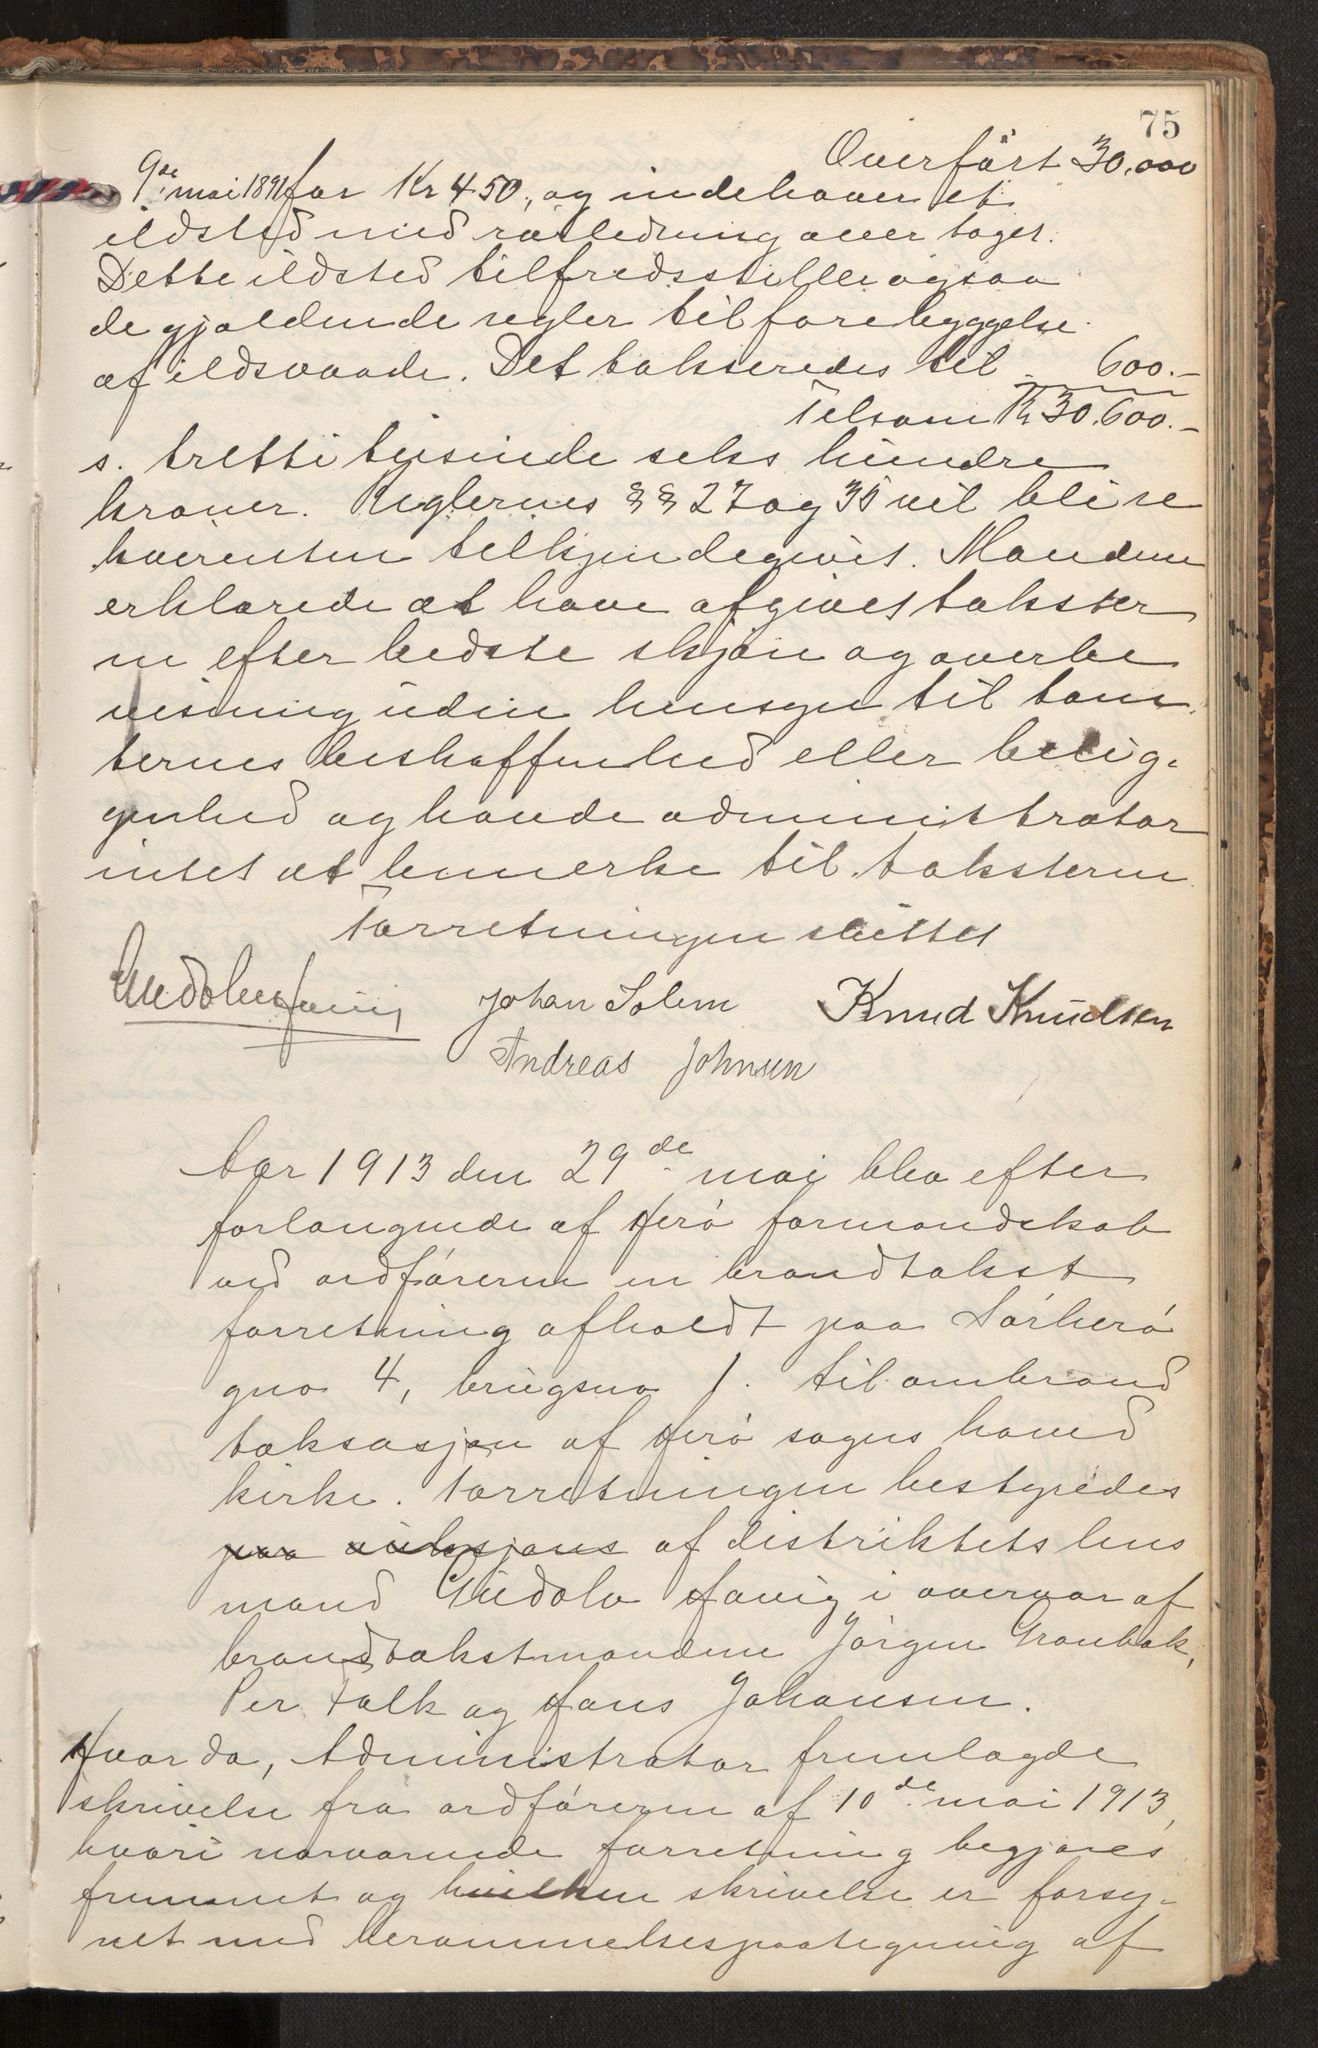 75
Overført 30,000
9de mai 1891 for Kr 450,, og indehaver et
ildsted med rørledning over taget.
Dette ildsted tilfredsstiller ogsaa
de gjældende regler til forebyggelse
af ildsvaade. Det takseredes til 600.-
Tilsam Kr 30.600.-
s. tretti tusinde seks hundre
kroner. Reglernes §§ 27 og 35 vil bli re
kvirenten tilkjendegivet. Mændene
erklærede at have afgivet takster
ne efter bedste skjøn og overbe
visning uden hensyn til tom
ternes beskaffenhed eller belig-
genhed og havde administrator
intet at bemerke til taksterne
Forretningen sluttet
Gudolv Havig Johan Solem Knud Knudsen
Andreas Johnsen
Aar 1913 den 29de mai blev efter
forlangende af Herø formandskab
ved ordføreren en brandtakst
forretning afholdt paa Sørherø
gno 4, brugsno 1. til ombrand
taksasjon af Herø sogns hoved
kirke. Forretningen bestyredes
paa auksjons af distriktets lens
mand Gudolv Havig i overvær af
brandtakstmændene Jørgen Grønbæk,
Per Falk og Hans Johansen.
Hvor da, Administrator fremlagde
skrivelse fra ordføreren af 10de mai 1913,
hvori nærværende forretning begjæres
fremmet og hvilken skrivelse er forsy-
net med berammelsespaategning af